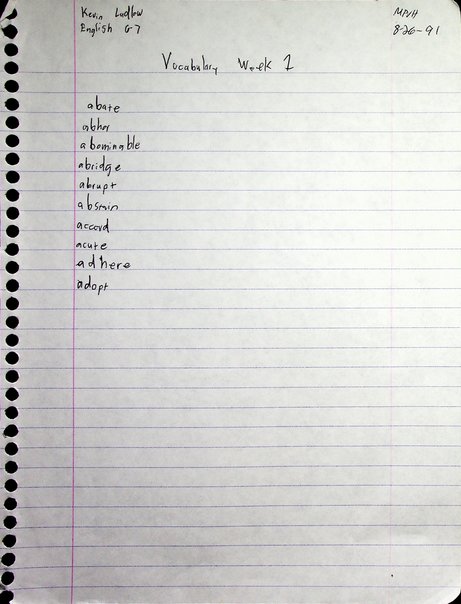 Kevin Ludlow
English G-7
8-26-91
Vocabulary Week 1
abate
abhor
abominable
abridge
abrupt
accord
acute
adhere
adopt